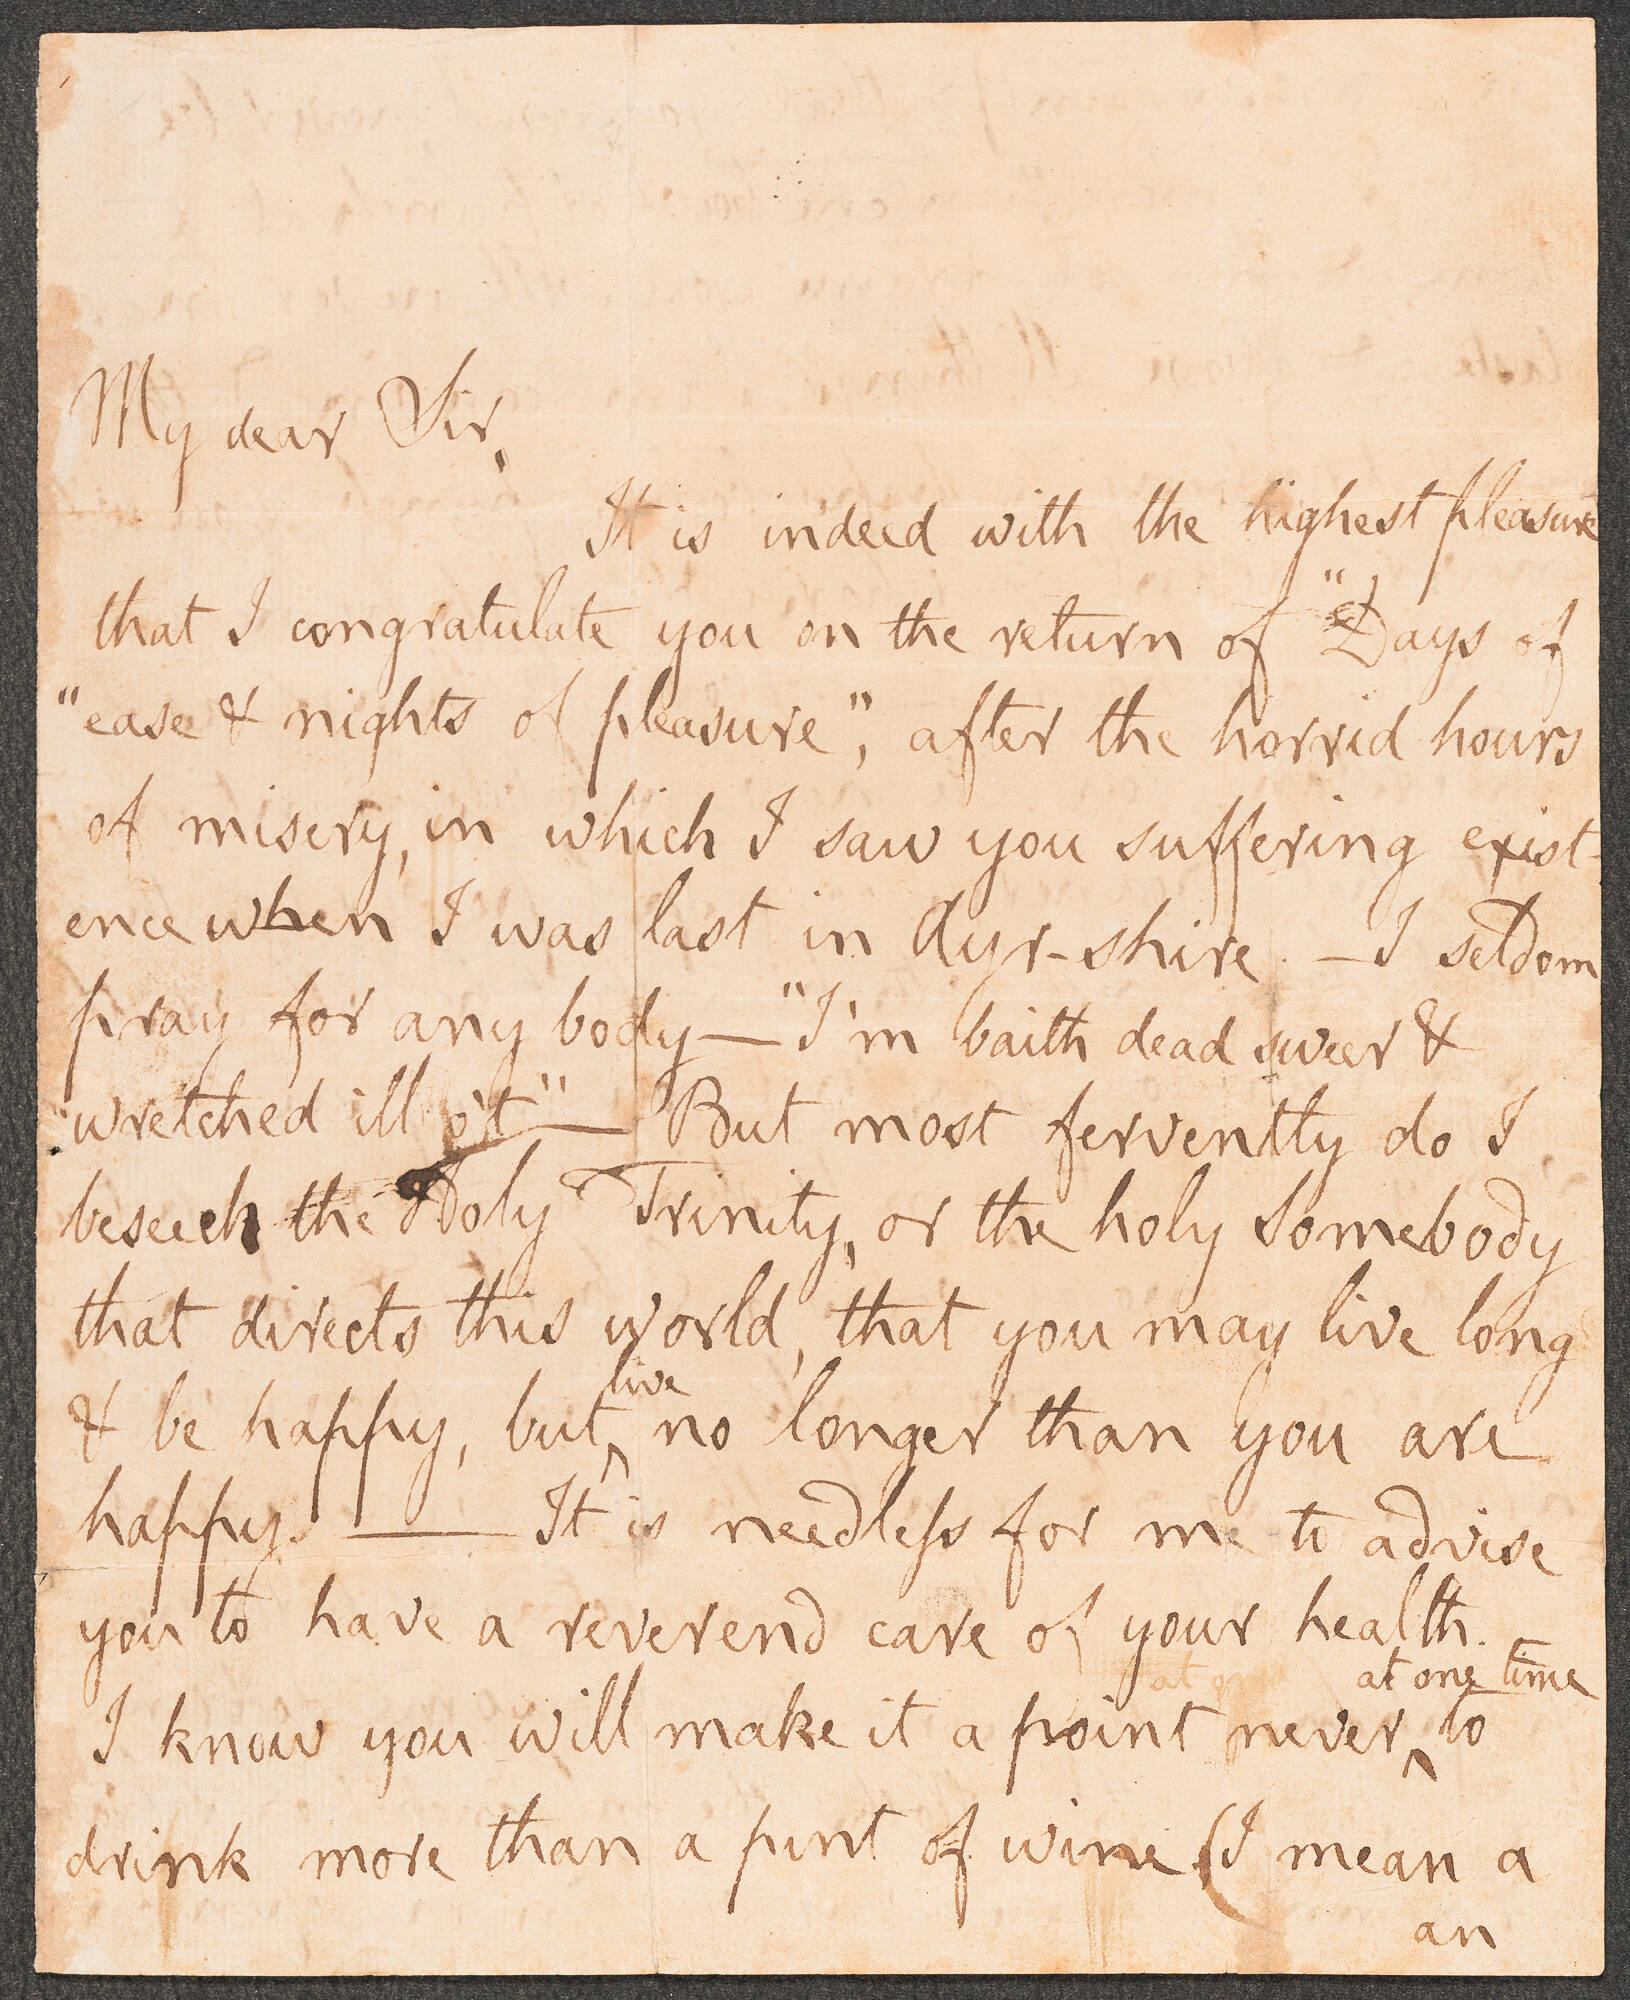 My dear Sir,
It is indeed with the highest pleasure
that I congratulate you on the return of "Days of
"ease & nights of pleasure", after the horrid hours
of misery, in which I saw you suffering exist-
ence when I was last in Ayr-shire. — I seldom
pray for any body — "I'm baith dead sweer &
"wretched ill o't" — But most fervently do I
beseech the Holy Trinity, or the holy Somebody
that directs this world, that you may live long
live
& be happy, but ‸ no longer than you are
happy. — It is needless for me to advise
you to have a reverend care of your health.
at one time
I know you will make it a point never ‸ to
drink more than a pint of wine (I mean a
an